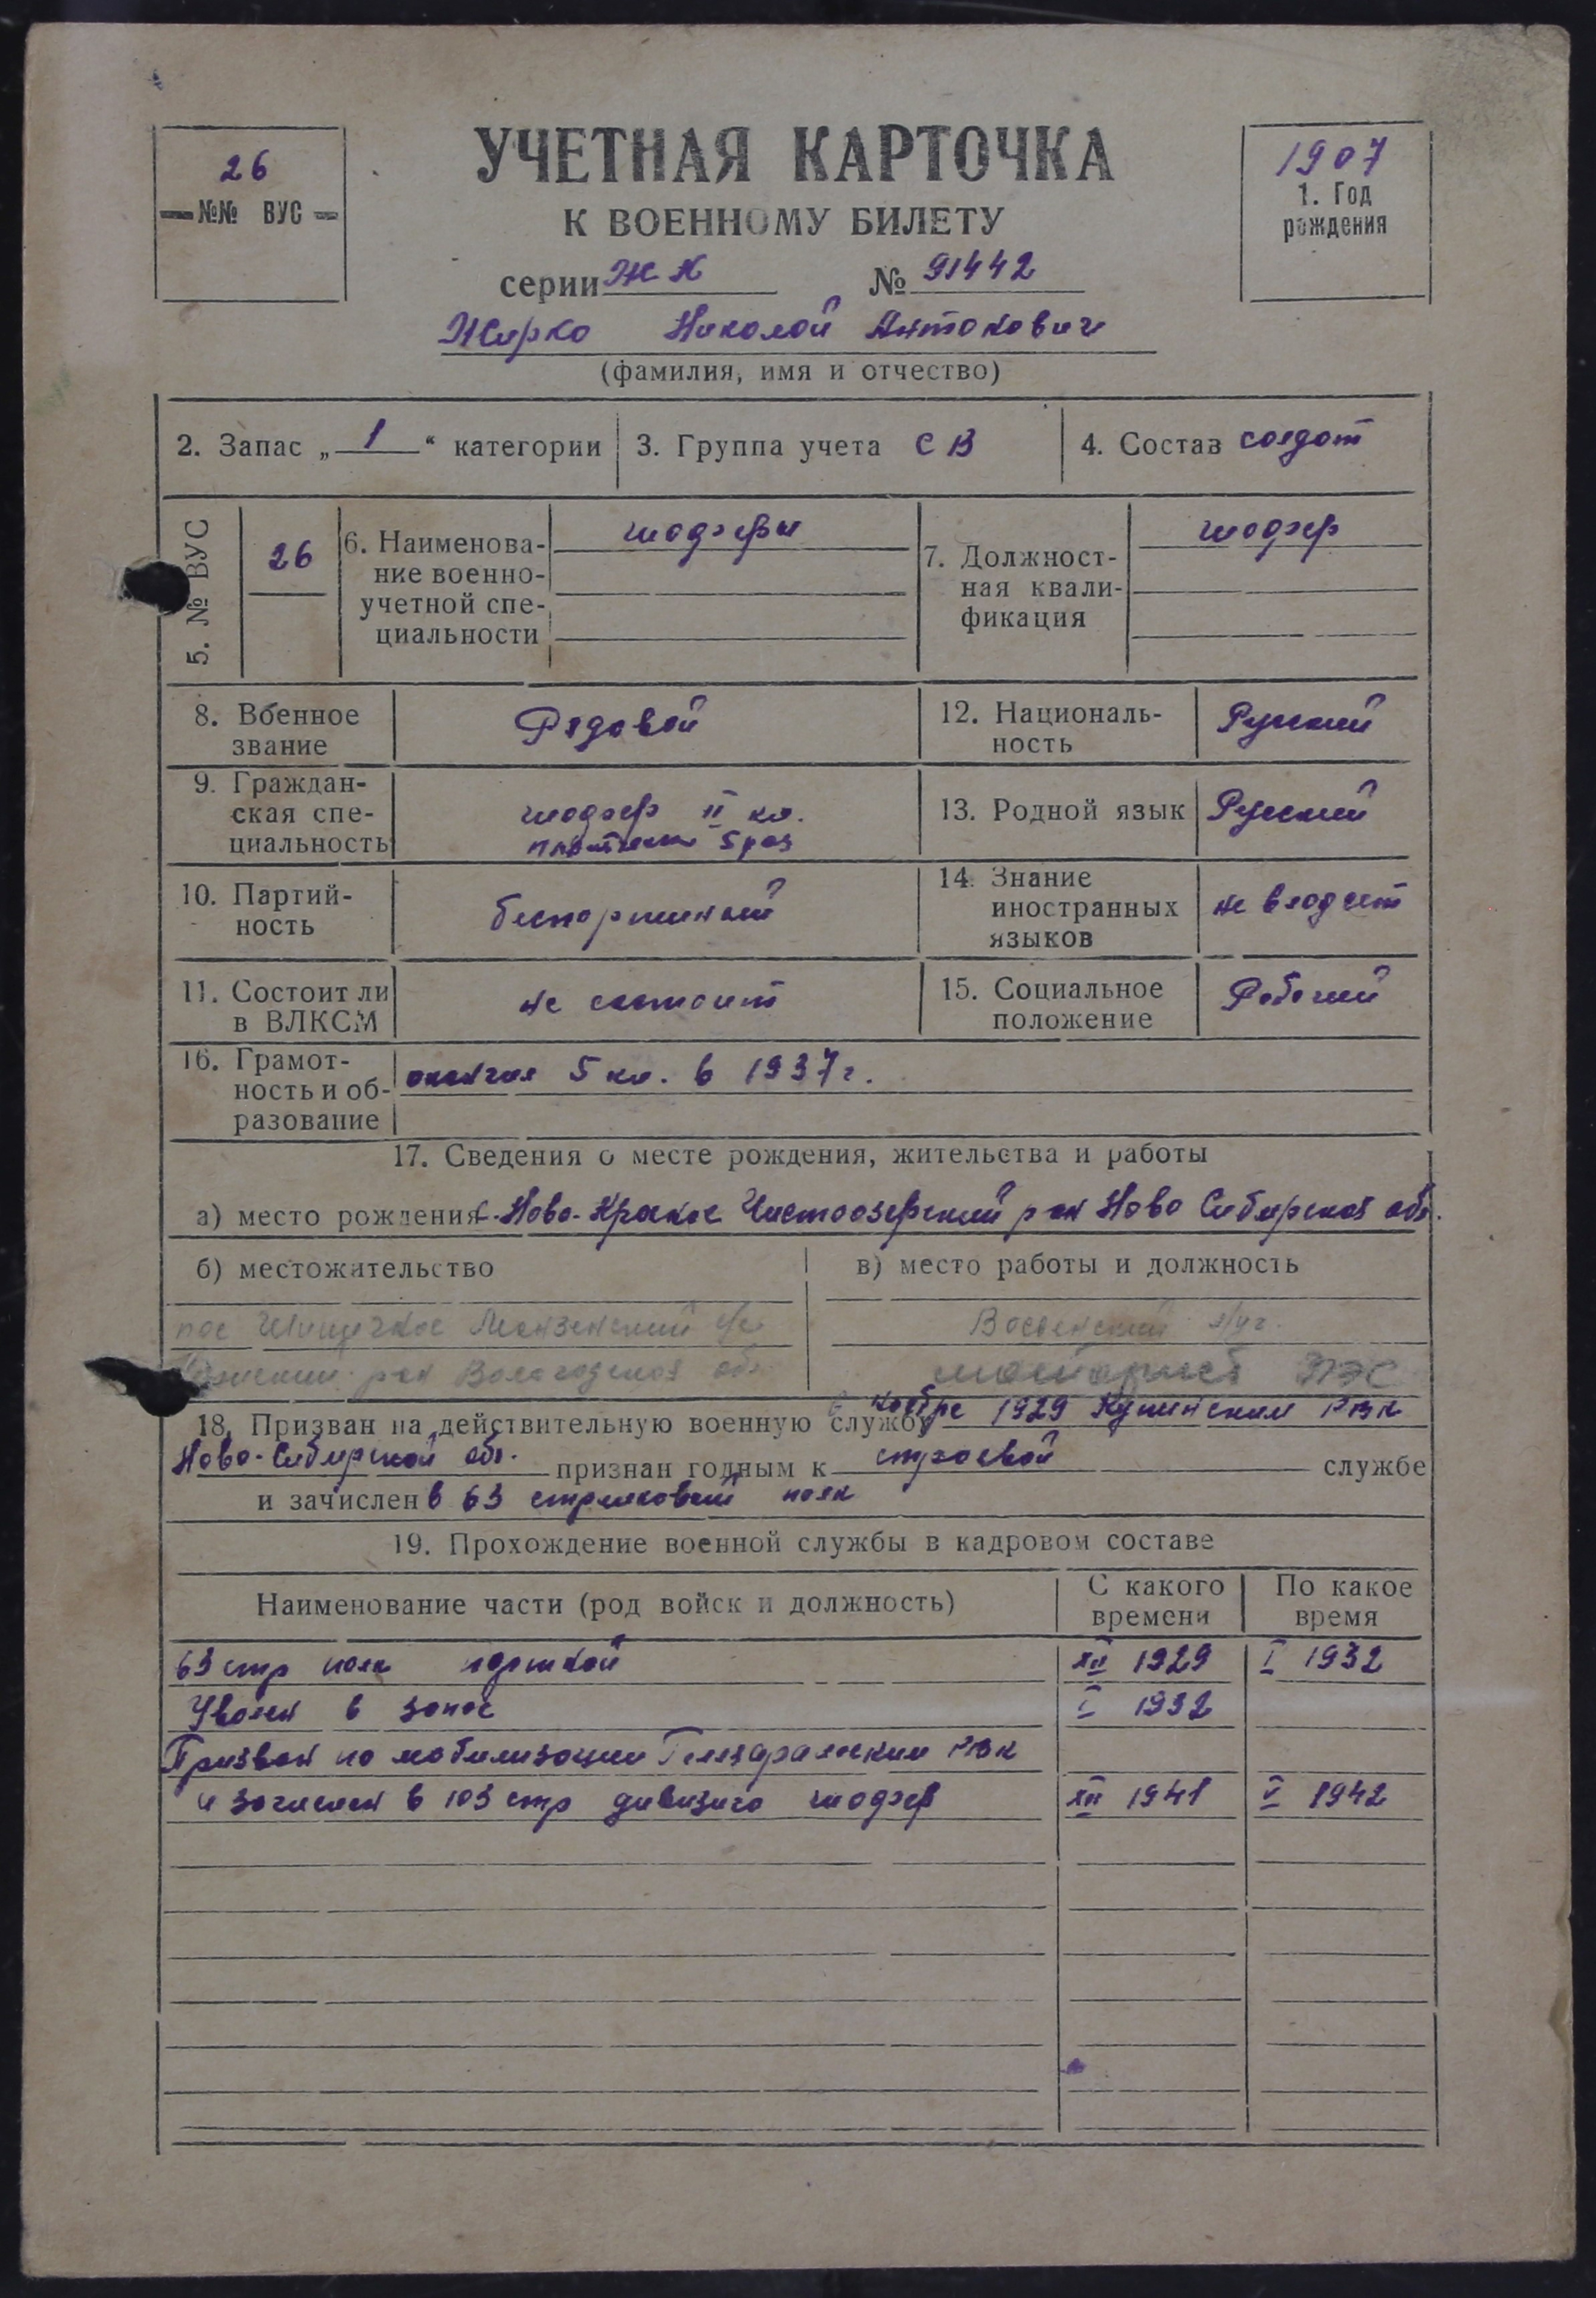 26
№№ ВУС
УЧЕТНАЯ КАРТОЧКА
К ВОЕННОМУ БИЛЕТУ
1907
1. Год
рождения
серии ЖК № 91442
Жирко Николай Антонович
(фамилия, имя и отчество)
2. Запас „ 1 “ категории 3. Группа учета СВ 4. Состав солдат
5. № ВУС 26
6. Наименова-
ние военно-
учетной спе-
циальности
шоферы
7. Должност-
ная квали-
фикация
шофер
8. Военное
звание
Рядовой
12. Националь-
ность
Русский
9. Граждан-
ская спе-
циальность
шофер II кл.
5 раз
13. Родной язык Русский
10. Партий-
ность
беспартийный
14. Знание
иностранных
языков
не владеет
11. Состоит ли
в ВЛКСМ
не состоит
15. Социальное
положение
Рабочий
16. Грамот-
ность и об-
разование
окончил 5 кл. в 1937 г.
17. Сведения о месте рождения, жительства и работы
а) место рождения с. Ново-Красное Чистоозерский р-он Ново Сибирская обл.
б) местожительство
в) место работы и должность
пос
р-он Вологодская обл.
18. Призван на действительную военную службу Ноябре 1929 Купинским РВК
Ново-Сибирской обл. признан годным к строевой службе
и зачислен в 63 стрелковый полк
19. Прохождение военной службы в кадровом составе
Наименование части (род войск и должность) С какого времени По какое время
63 стр полк XII 1929 I 1932
Уволен в запас I 1932
Призван по мобилизации РВК
и зачислен в 103 стр дивизию шофер XII 1941 V 1942